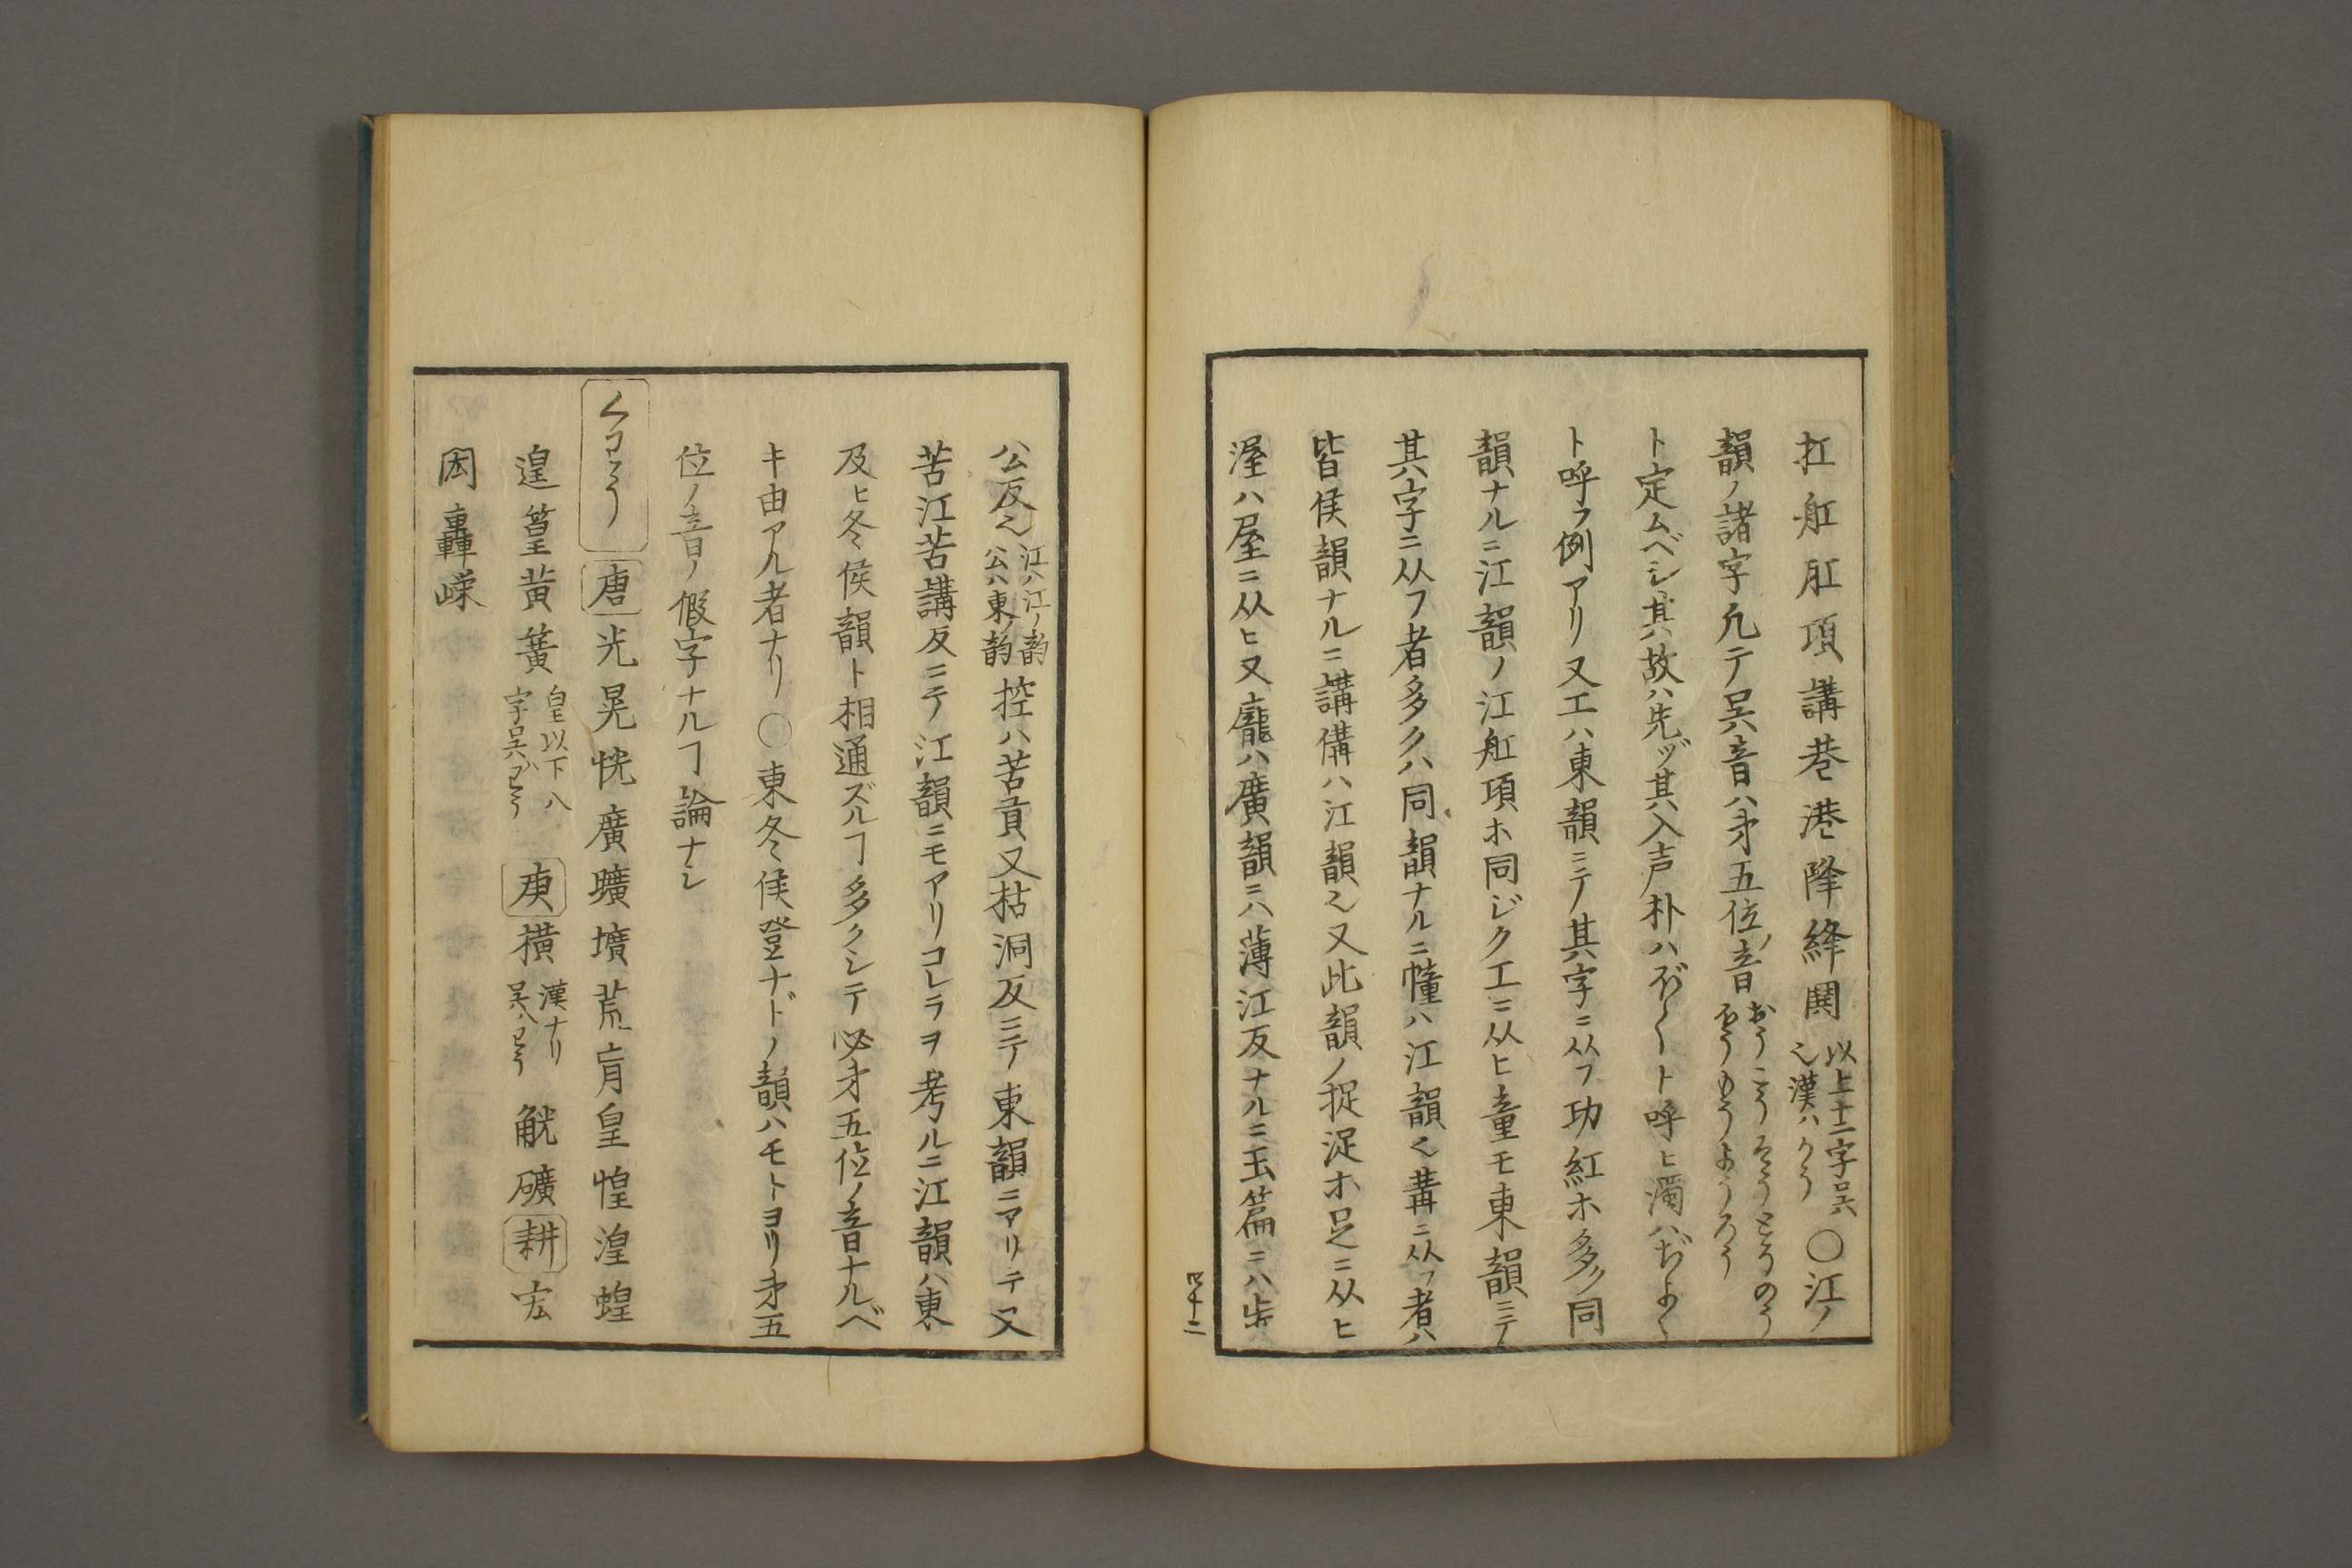 扛舡肛項講巷港降絳閧 以上十二字呉 也漢ハかう ○江ノ
韻ノ諸字凡テ呉音ハ㐧五位ノ音 おうこうそうとうのう ほうもうようろう
ト定ムベシ其故ハ先ヅ其入声朴ハぼくト呼ヒ濁ハぢよく
ト呼フ例アリ又工ハ東韻ニテ其字ニ从フ功紅ホ多ク同
韻ナルニ江韻ノ江舡項ホ同ジク工ニ从ヒ童モ東韻ニテ
其字ニ从フ者多クハ同韻ナルニ幢ハ江韻也冓ニ从フ者ハ
皆侯韻ナルニ講傋ハ江韻也又此韻ノ捉浞ホ足ニ从ヒ
渥ハ屋ニ从ヒ又龐ハ廣韻ニハ薄江反ナルニ玉篇ニハ歩
四十二
公反也 江ハ江ノ韵 公ハ東ノ韵 控ハ苦貢又枯洞反ニテ東韻ニアリテ又
苦江苦講反ニテ江韻ニモアリコレラヲ考ルニ江韻ハ東
及ヒ冬侯韻ト相通ズルヿ多クシテ必㐧五位ノ音ナルベ
キ由アル者ナリ○東冬侯登ナドノ韻ハモトヨリ㐧五
位ノ音ノ假字ナルヿ論ナシ
くわう 唐 光晃恍廣曠壙荒肓皇惶湟蝗
遑篁黄簧 皇以下八 字呉ハわう 庚 横 漢ナリ 呉ハわう 觥礦 耕 宏
閎轟嶸